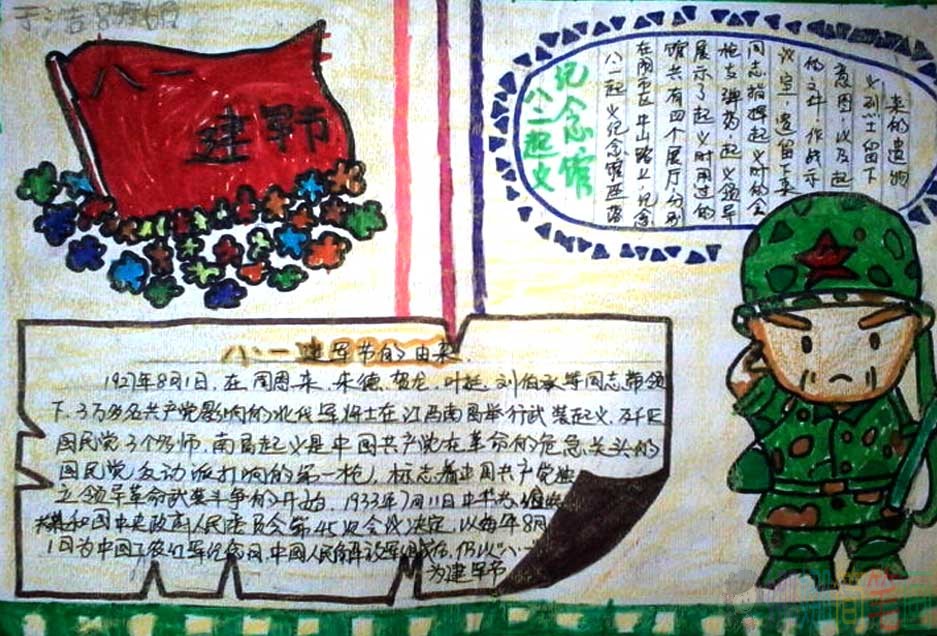 八一
建军节
八一起义
纪念馆
八一起义纪念馆座落
在南市区中山路上,纪念
馆共有四个展厅,分别
展示了起义时用过的
枪支弹药,起义领导
同志指挥起义时的会
议室,遗留下来
的文件,作战示
意图,以及起
义烈士留下
来的遗物
八一建军节的由来.
1927年8月1日,在周恩来、朱德、贺龙、叶挺、刘伯承等同志带领
下,3万多名共产党影响的北伐军将士在江西南昌举行武装起义,
国民党3个师,南昌起义是中国共产党在革命的危急关头的
国民党反动派打响的第一枪,标志着中国共产党独
立领导革命武装斗争的开始.1933年7月11日中华
和国中央政府人民委员会第45次会议决定,以每年8月
1日为中国工农红军纪念日,中国人民解放军组成后,仍以八一
为建军节